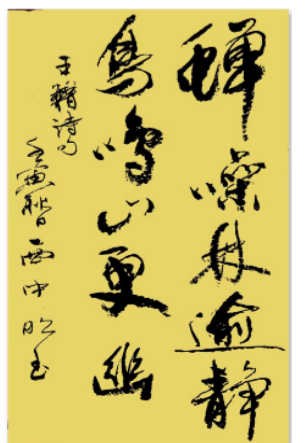 蝉噪林逾静
鸟鸣山更幽
王籍诗句